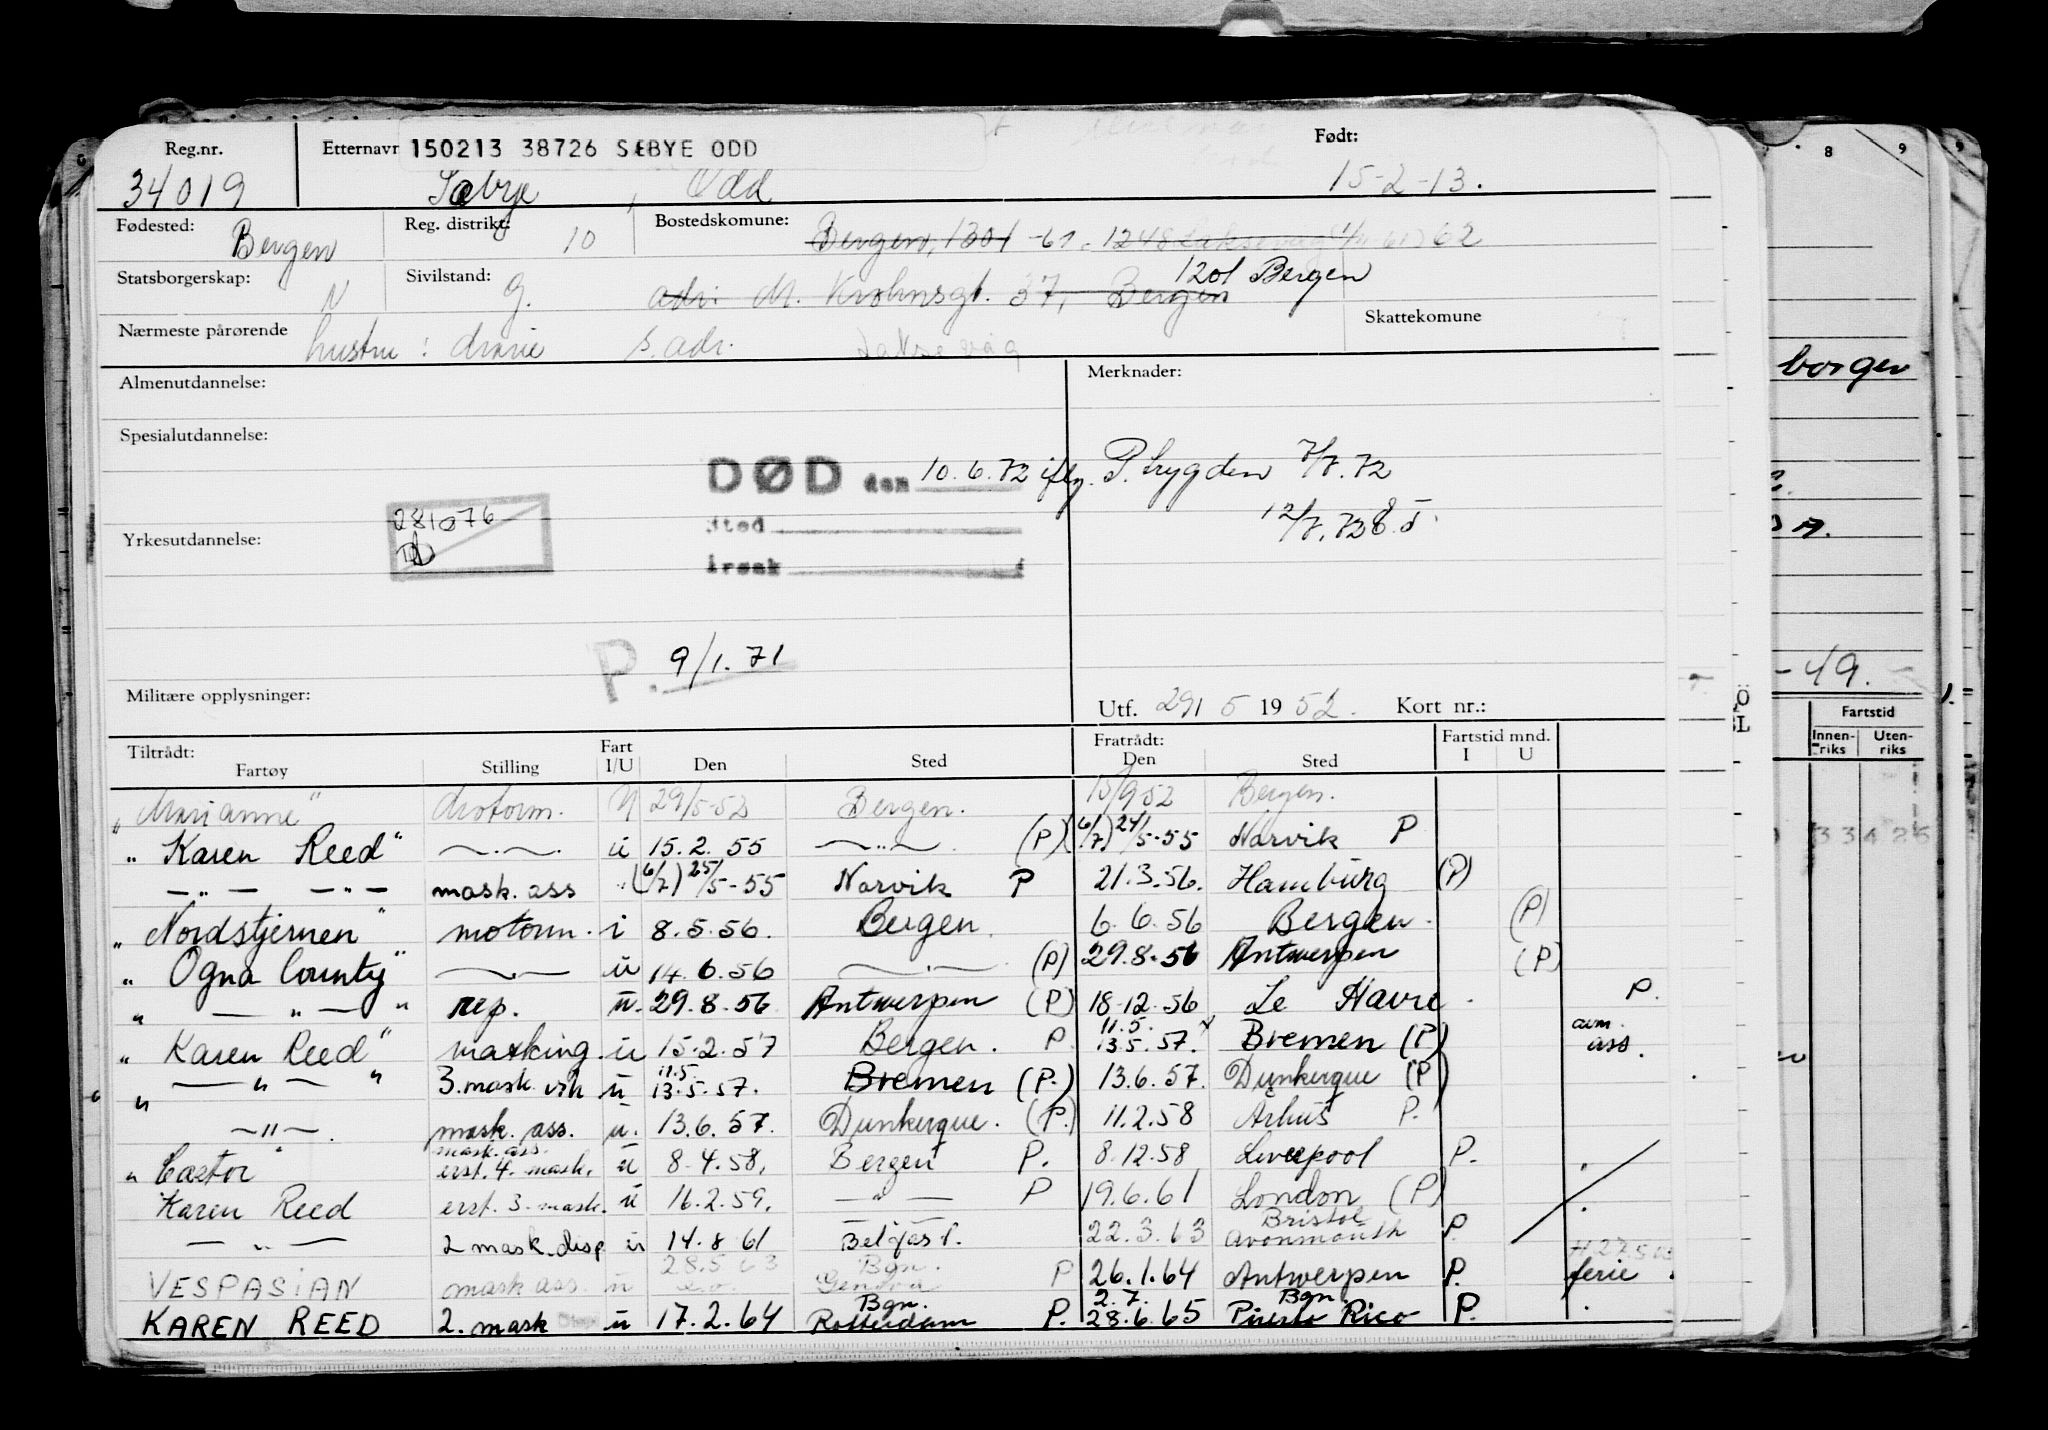 Reg.nr. Etternavn 150213 38726 SÆBYE ODD Født:
34019 Sæbye, Odd 15-2-13.
Fødested: Bergen Reg. distrikt: 10 Bostedskomune: Bergen, 1301 -61. 1248 Laksevåg 62
1201 Bergen
Statsborgerskap: N Sivilstand: g. adr: M. Krohnsgt. 37, Bergen
Nærmeste pårørende hustru: Marie s. adr. Laksevåg Skattekomune
Almenutdannelse: Merknader:
Spesialutdannelse:
DØD den 10.6.72 iflg. P. trygden 7/7.72
281076 Sted 12/7.72
Yrkesutdannelse:
årsak
P. 9/1.71
Militære opplysninger: Utf. 29/5 1952. Kort nr.:
Tiltrådt: Fart Fratrådt: Fartstid mnd.
Fartøy Stilling I/U Den Sted Den Sted I U
"Marianne" Motorm. U 29/5-52 Bergen. 15/9-52 Bergen.
"Karen Reed" —.—.— u 15.2.55 —"— (P) (6/7) 24/5-55 Narvik P
—"— —"— mask. ass (6/7) 25/5-55 Narvik P 21.3.56. Hamburg (P)
"Nordstjernen" motorm. i 8.5.56. Bergen. 6.6.56 Bergen. (P)
"Ogna County" —.— u 14.6.56 —.— (P) 29.8.56 Antwerpen (P)
" — " — " rep. u. 29.8.56 Antwerpen (P) 18.12.56 Le Havre. P.
11.5. avm.
"Karen Reed" masking. u 15.2.57 Bergen. P. 13.5.57. Bremen (P) ass.
11.5.
" — " — " 3. mask. vik u 13.5.57. Bremen (P.) 13.6.57. Dunkerque (P)
—"—. mask. ass. u. 13.6.57. Dunkerque. (P.) 11.2.58 Århus P.
mask. ass.
"Castor" erst. 4. mask. u 8.4.58. Bergen P. 8.12.58 Liverpool P.
Karen Reed erst. 3. mask. u 16.2.59. —"— P 19.6.61 London (P)
Bristol
— " — 2 mask. disp u 14.8 61 Belfast. 22.3.63 Avonmouth P.
28.5 63 Bgn.
VESPASIAN mask ass. u Genova P 26.1.64 Antwerpen P. ferie.
Bgn. 2.7. Bgn.
KAREN REED 2. mask u 17.2.64 Rotterdam P. 28.6.65 Puerto Rico P.
8 9
borgen
-49.
Fartstid
Innen-riks Uten-riks
33426